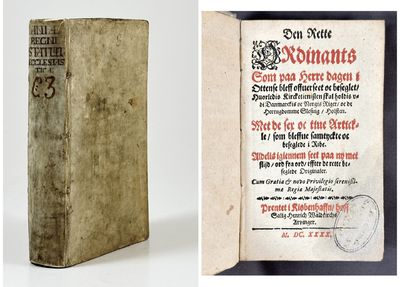 DANIÆ
REGNI
STATUTA
ECCLESIAS
TICA
C3
Den Rette
ORdinants
Som paa Herre dagen i
Ottense bleff offuerseet oc beseglet/
Huorledis Kircketienisten skal holdis v-
di Danmarckis oc Norgis Riger/ oc de
Hertugdomme Sleßuig/ Holsten.
Met de sex oc tiue Artick-
le/ som bleffue samtyckte oc
beseglede i Ribe.
Aldelis igiennem seet paa ny met
flijd/ ord fra ord/ effter de rette be-
seglede Originaler.
Cum Gratia & novo Privilegio serenissi-
mæ Regiæ Majestatis.
Prentet i Kiøbenhaffn/ hoss
Salig Henrich Waldkirchs
Arvinger.
M. DC. XXXX.